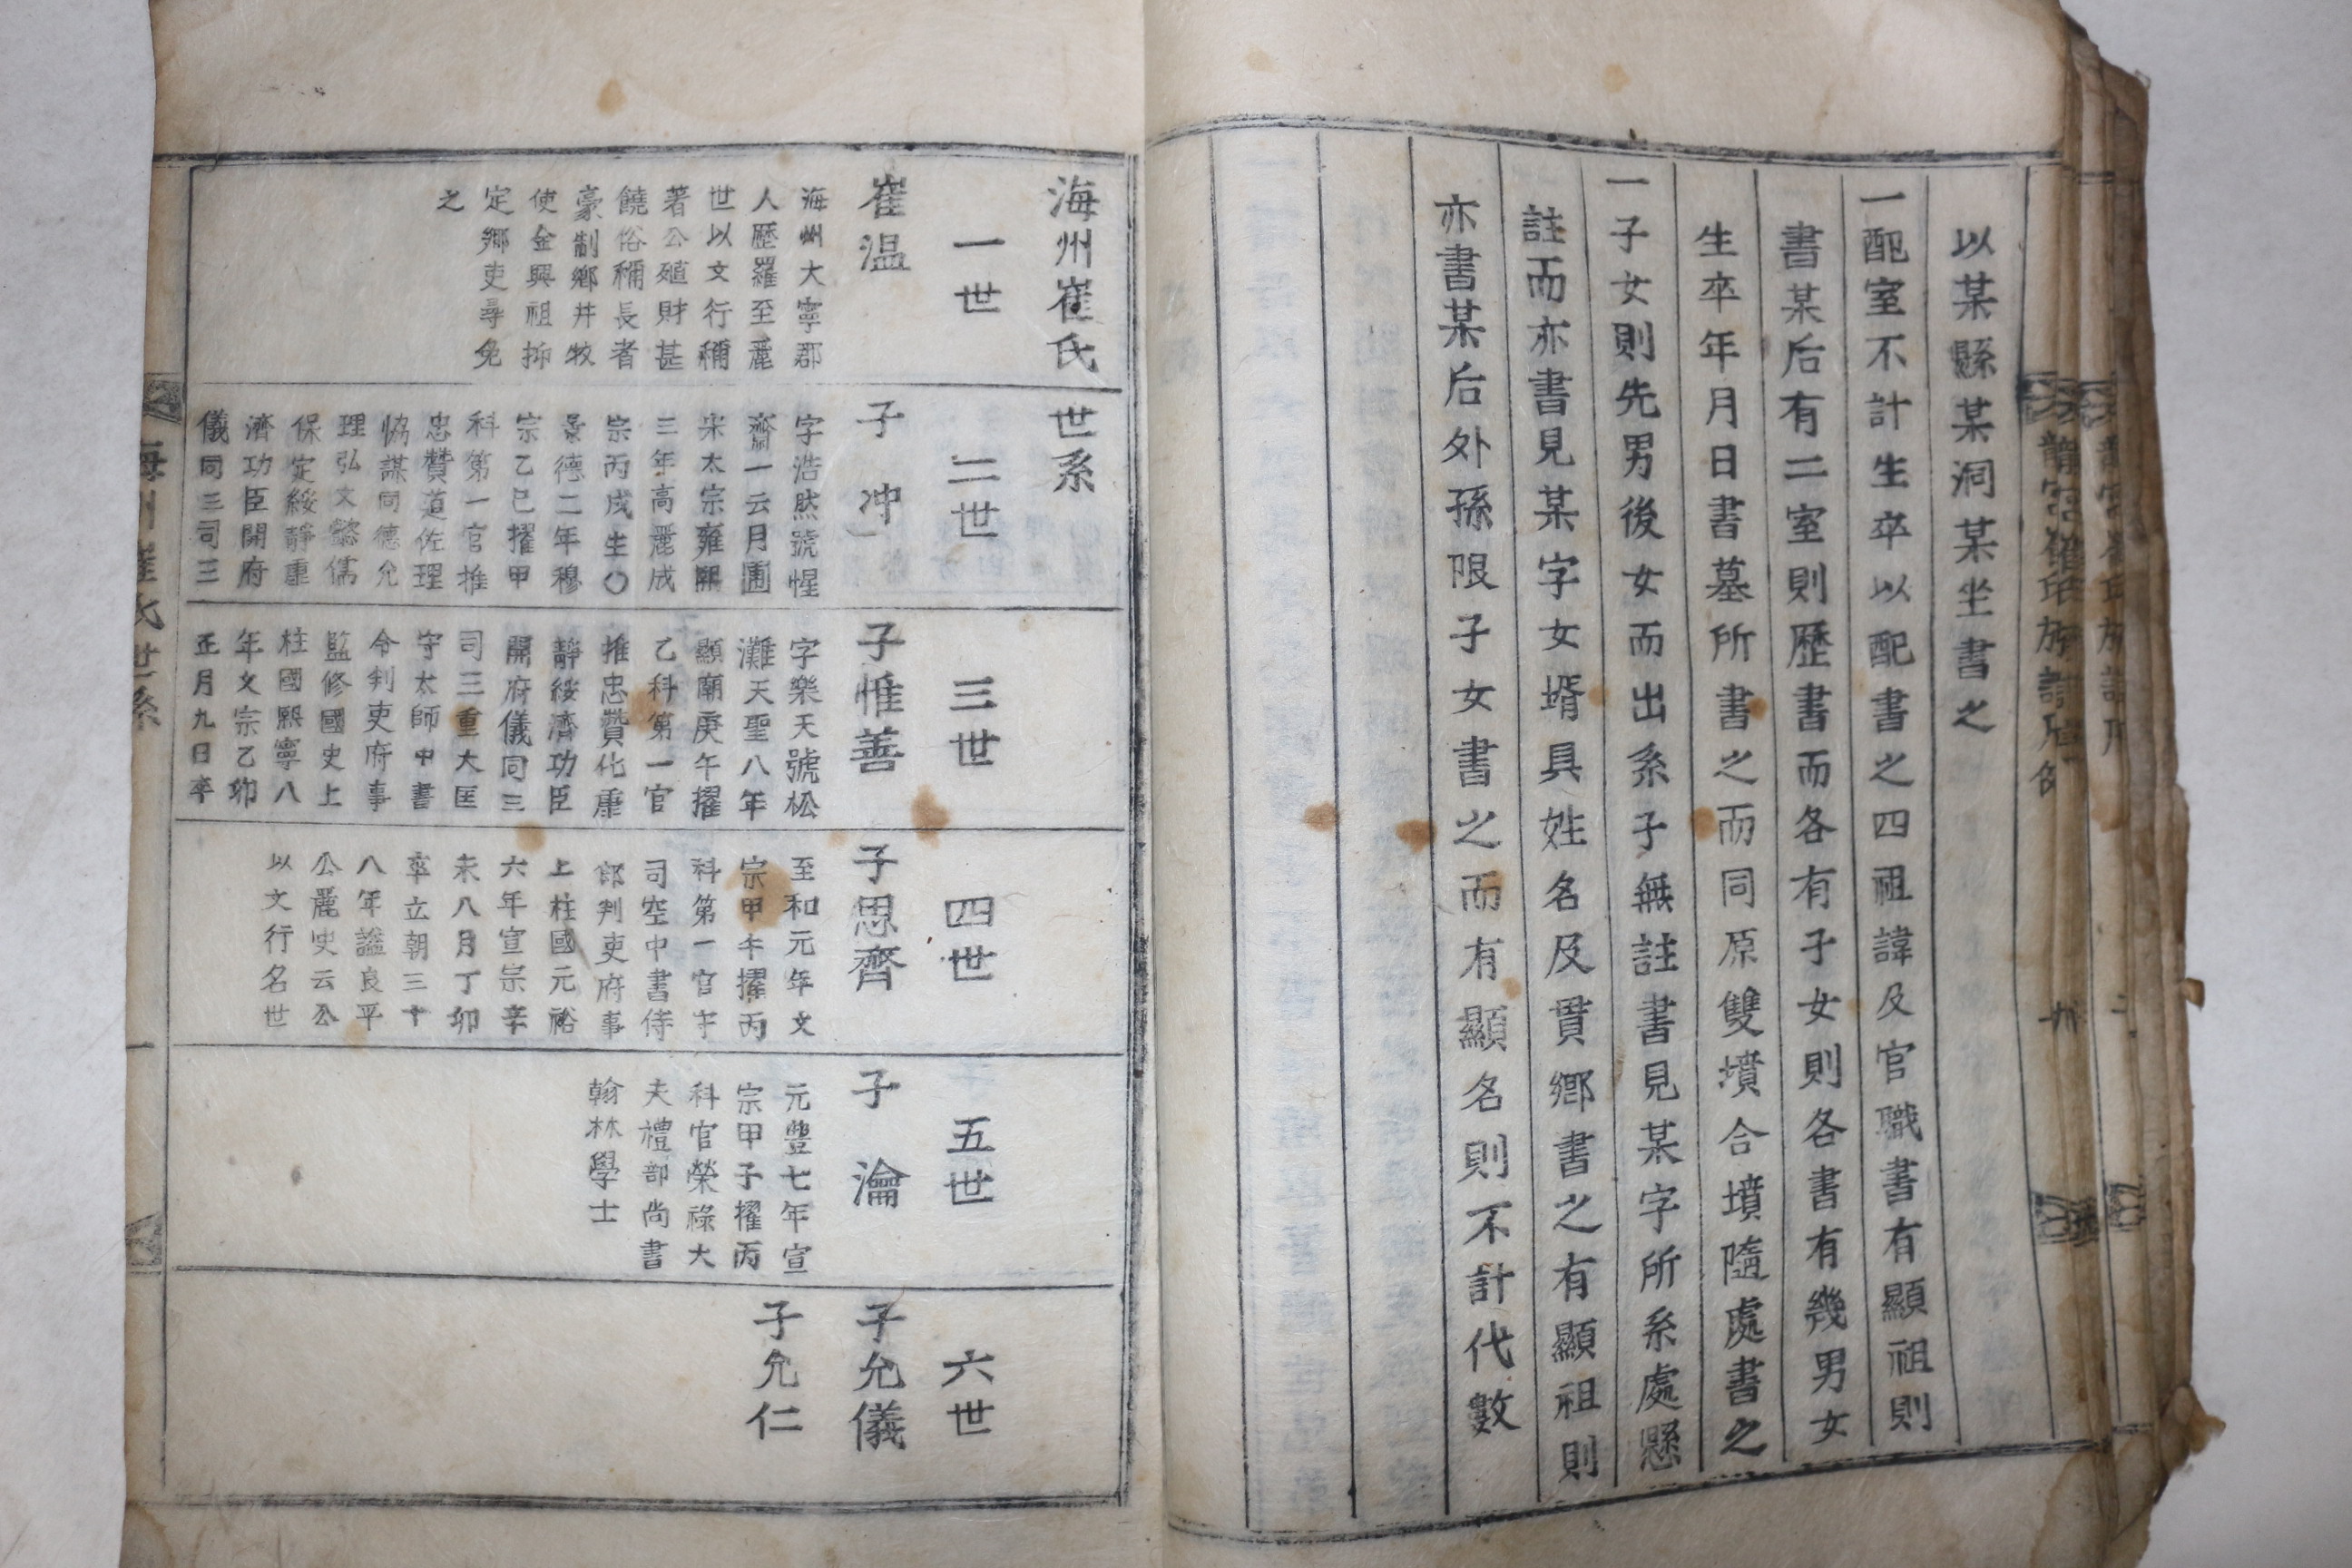 以某縣某洞某坐書之
一配室不計生卒以配書之四祖諱及官職書有顯祖則
書某后有二室則歷書而各有子女則各書有幾男女
生卒年月日書墓所書之而同原雙墳合墳隨處書之
一子女則先男後女而出系子無註書見某字所系處懸
註而亦書見某字女壻具姓名及貫鄉書之有顯祖則
亦書某后外孫限子女書之而有顯名則不計代數
海州崔氏世系
一世
崔温
海州大寧郡
人歷羅至麗
世以文行稱
著公殖財甚
饒俗稱長者
豪制鄉井牧
使金興祖抑
定鄉吏尋免
之
二世
子冲
字浩然號惺
齋一云月圃
宋太宗雍熙
三年高麗成
宗丙戌生〇
景德二年穆
宗乙巳擢甲
科第一官推
忠贊道佐理
恊謀同德允
理弘文懿儒
保定綏靜康
濟功臣開府
儀同三司三
三世
子惟善
字樂天號松
灘天聖八年
顯廟庚午擢
乙科第一官
推忠贊化康
靜綏濟功臣
開府儀同三
司三重大匡
守太師中書
令判吏府事
監修國史上
柱國熙寧八
年文宗乙卯
正月九日卒
四世
子思齊
至和元年文
宗甲午擢丙
科第一官守
司空中書侍
郎判吏府事
上柱國元祐
六年宣宗辛
未八月丁卯
卒立朝三十
八年諡良平
公麗史云公
以文行名世
五世
子瀹
元豐七年宣
宗甲子擢丙
科官榮祿大
夫禮部尚書
翰林學士
六世
子允儀
子允仁
海州崔氏世系
一